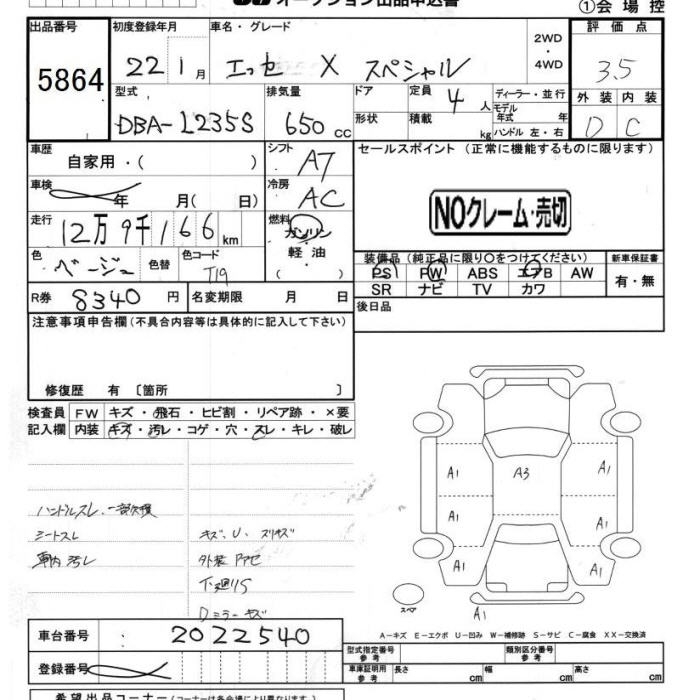 オークション出品申込書
①会場控
出品番号 初度登録年月 車名・グレード 2WD・4WD 評価点
5864 22 1月 エッセ X スペシャル 3.5
型式 排気量 ドア 定員 4人 ディーラー・並行 外装 内装
DBA-L235S 650cc 形状 積載 kg モデル年式 年 ハンドル 左・右 D C
車歴 自家用・( ) シフト AT セールスポイント (正常に機能するものに限ります)
車検 年 月( 日) 冷房 AC
NOクレーム・売切
走行 12万9千166km 燃料 ガソリン・軽油 ( )
色 ベージュ 色替 色コード T19
装備品 (純正品に限り〇をつけてください) 新車保証書
PS PW ABS エアB AW 有・無
SR ナビ TV カワ
R券 8340円 名変期限 月 日 後日品
注意事項申告欄 (不具合内容等は具体的に記入して下さい)
修復歴 有 〔箇所 〕
検査員 FW キズ・飛石・ヒビ割・リペア跡・×要
記入欄 内装 キズ・汚レ・コゲ・穴・スレ・キレ・破レ
A1 A3 A1
A1 A1
A1 A1
ハンドルスレ、一部欠損
シートスレ キズ、U、スリキズ
車内汚レ 外装
下廻りS
Dミラーキズ
スペア A1
A-キズ E-エクボ U-凹み W-補修跡 S-サビ C-腐食 XX-交換済
車台番号 2022540
型式指定番号 参考 類別区分番号 参考
登録番号
車庫証明用 参考 長さ cm 幅 cm 高さ cm
希望出品コーナー